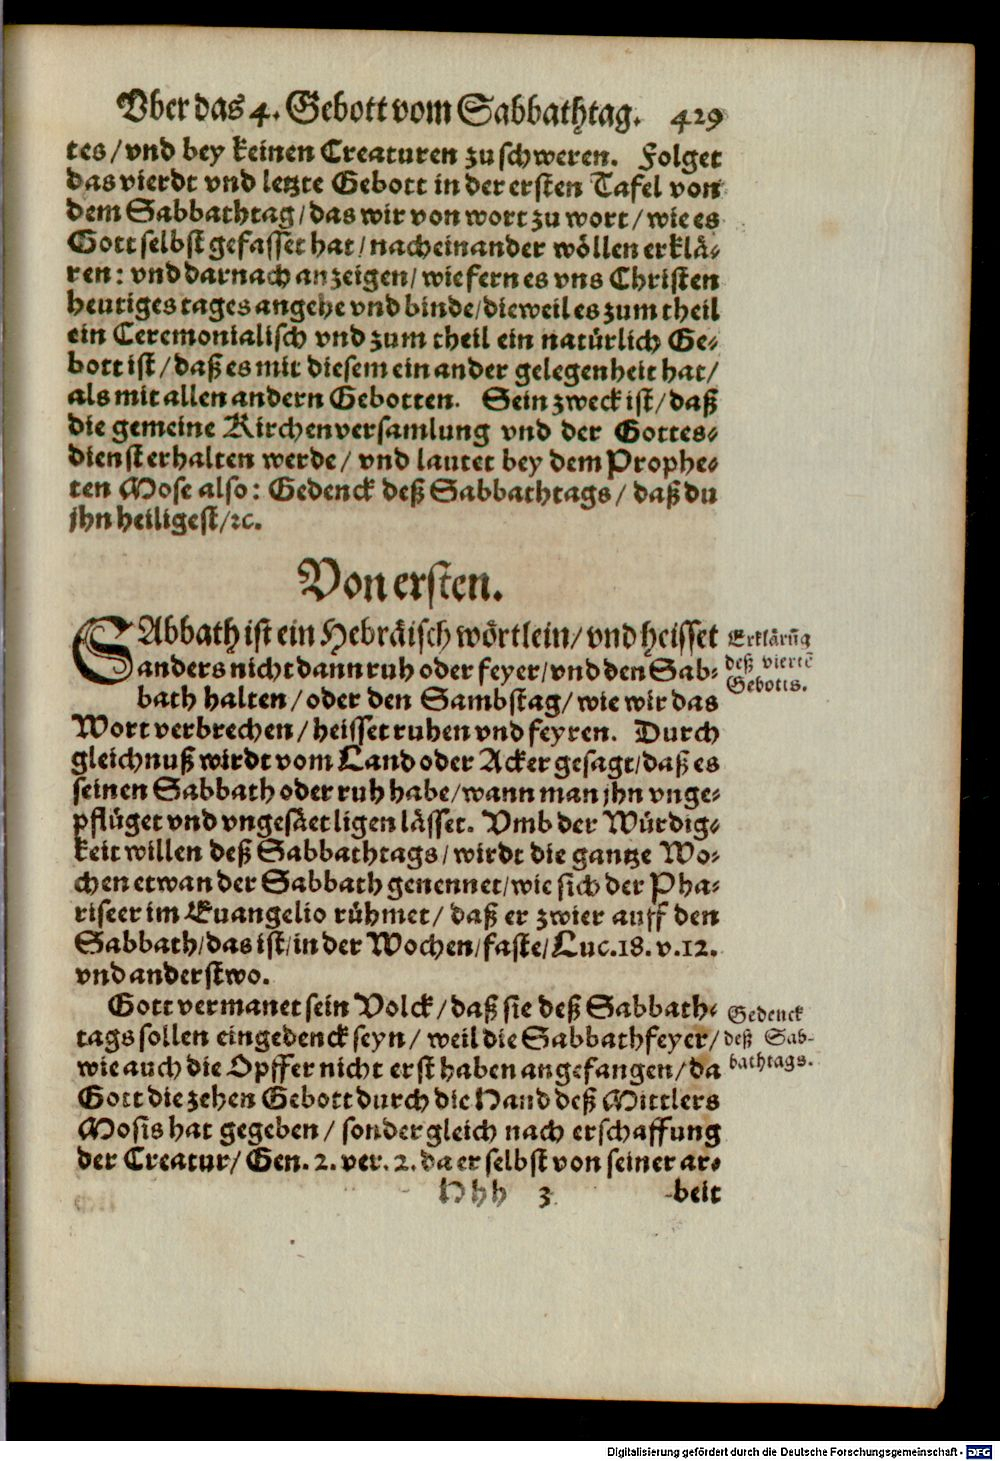 Vber das 4. Gebott vom Sabbathtag. 429
tes/vnd bey keinen Creaturen zu schweren. Folget
das vierdt vnd letzte Gebott in der ersten Tafel von
dem Sabbathtag/das wir von wort zu wort/wie es
Gott selbst gefasset hat/nacheinander wöllen erklä-
ren: vnd darnach anzeigen/wie fern es vns Christen
heutiges tages angehe vnd binde/dieweil es zum theil
ein Ceremonialisch vnd zum theil ein natürlich Ge-
bott ist/daß es mit diesem ein ander gelegenheit hat/
als mit allen andern Gebotten. Sein zweck ist/daß
die gemeine Kirchenversamlung vnd der Gottes-
dienst erhalten werde/vnd lautet bey dem Prophe-
ten Mose also: Gedenck deß Sabbathtags/daß du
jhn heiligest/ꝛc.
Von ersten.
SAbbath ist ein Hebräisch wörtlein/vnd heisset
anders nicht dann ruh oder feyer/vnd den Sab-
bath halten/oder den Sambstag/wie wir das
Wort verbrechen/heisset ruhen vnd feyren. Durch
gleichnuß wirdt vom Land oder Acker gesagt/daß es
seinen Sabbath oder ruh habe/wann man jhn vnge-
pflüget vnd vngesäet ligen lässet. Vmb der Würdig-
keit willen deß Sabbathtags/wirdt die gantze Wo-
chen etwan der Sabbath genennet/wie sich der Pha-
riseer im Euangelio rühmet/daß er zwier auff den
Sabbath/das ist/in der Wochen/faste/Luc.18.v.12.
vnd anderstwo.
Erklärūg
deß viertē
Gebotts.
Gott vermanet sein Volck/daß sie deß Sabbath-
tags sollen eingedenck seyn/weil die Sabbathfeyer/
wie auch die Opffer nicht erst haben angefangen/da
Gott die zehen Gebott durch die Hand deß Mittlers
Mosis hat gegeben/sonder gleich nach erschaffung
der Creatur/Gen.2.ver.2.da er selbst von seiner ar-
Gedenck
deß Sab-
bathtags.
Hhh 3 beit
Digitalisierung gefördert durch die Deutsche Forschungsgemeinschaft - DFG